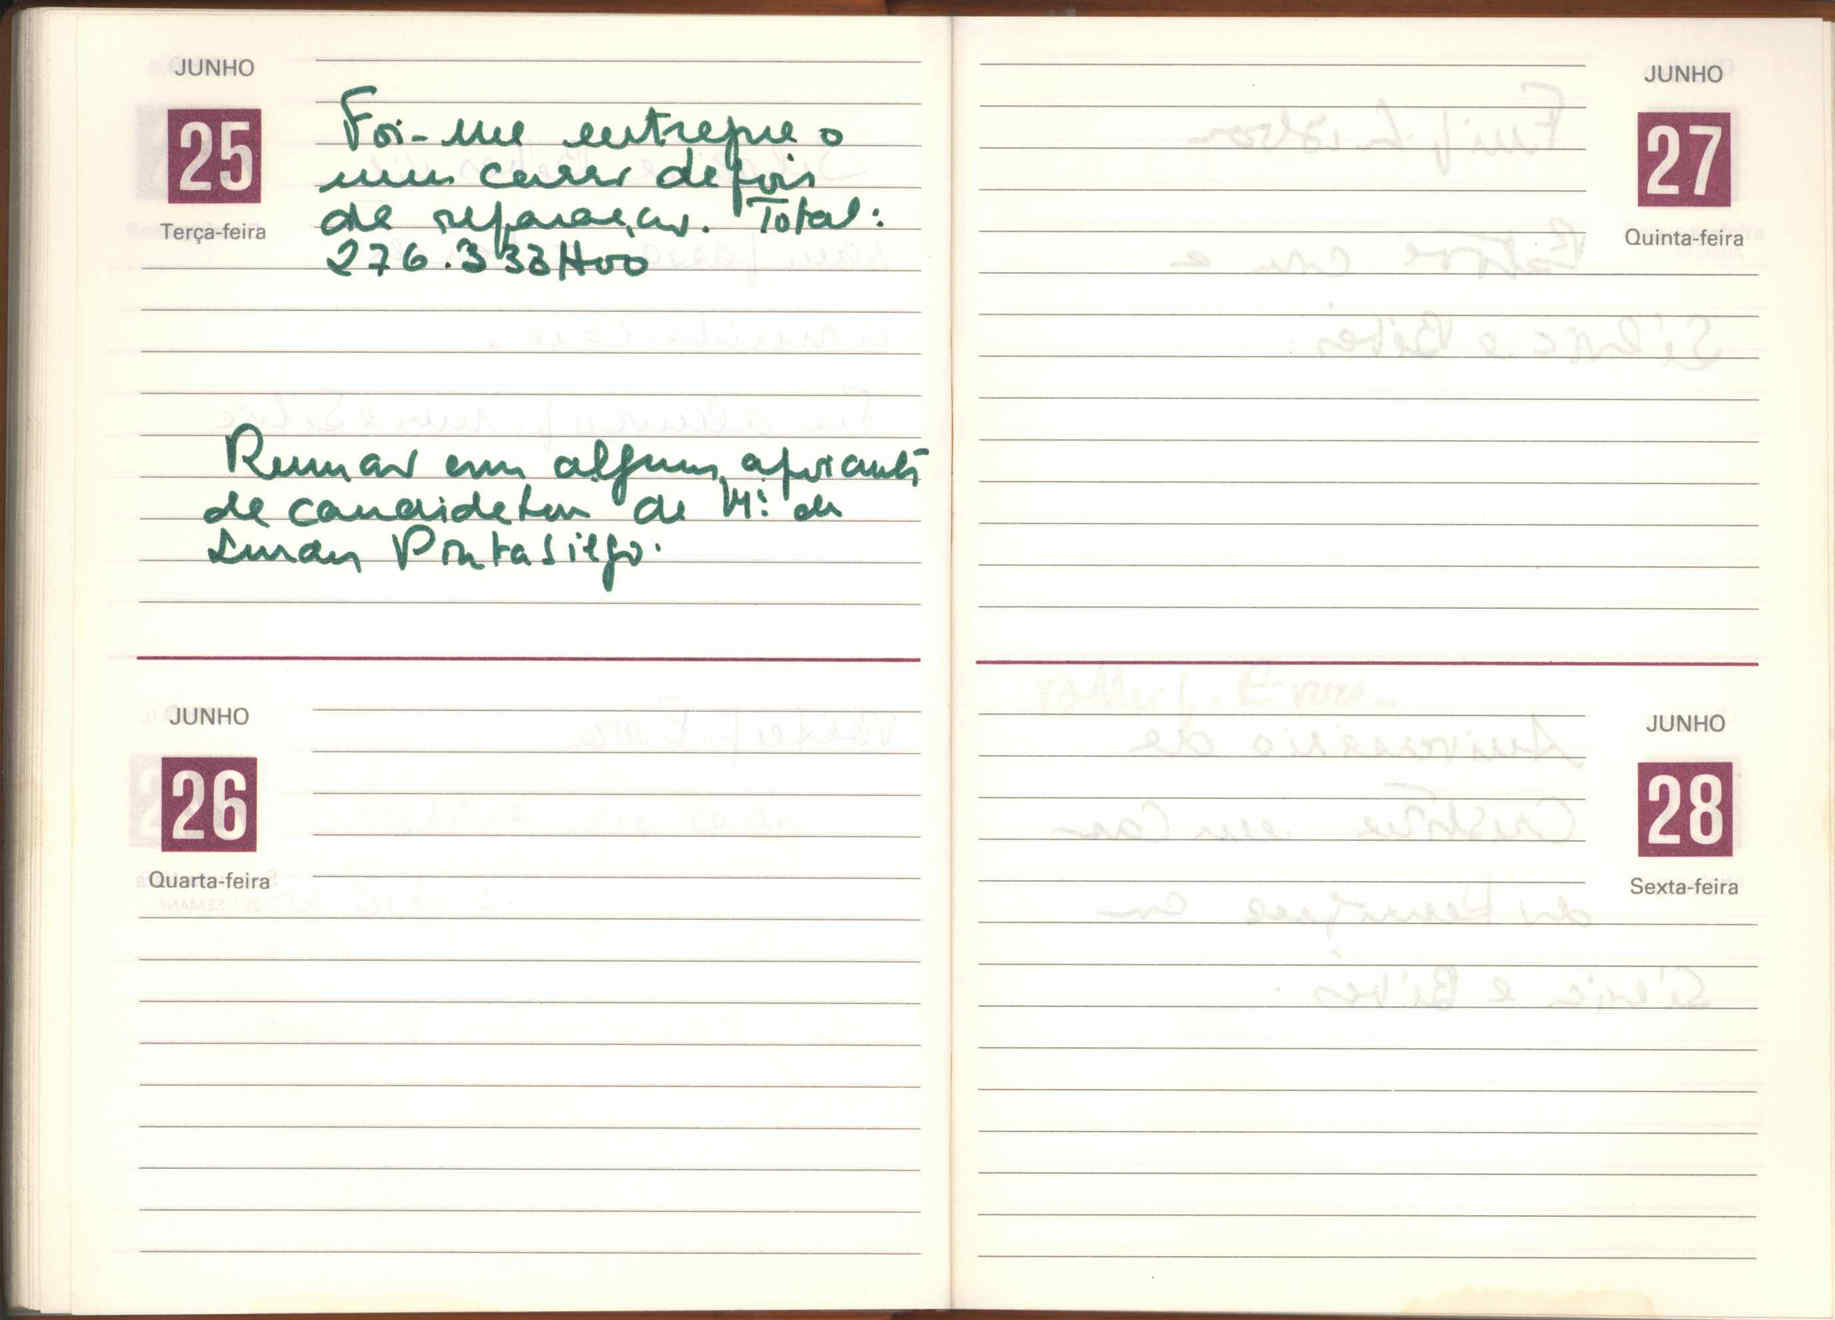 JUNHO
25
Terça-feira
Foi-me entregue o
meu carro depois
de reparação. Total:
276.333$00
Reunião com alguns apoiantes
de candidatura de Mª. de
Lurdes Pintasilgo.
JUNHO
26
Quarta-feira
JUNHO
27
Quinta-feira
JUNHO
28
Sexta-feira